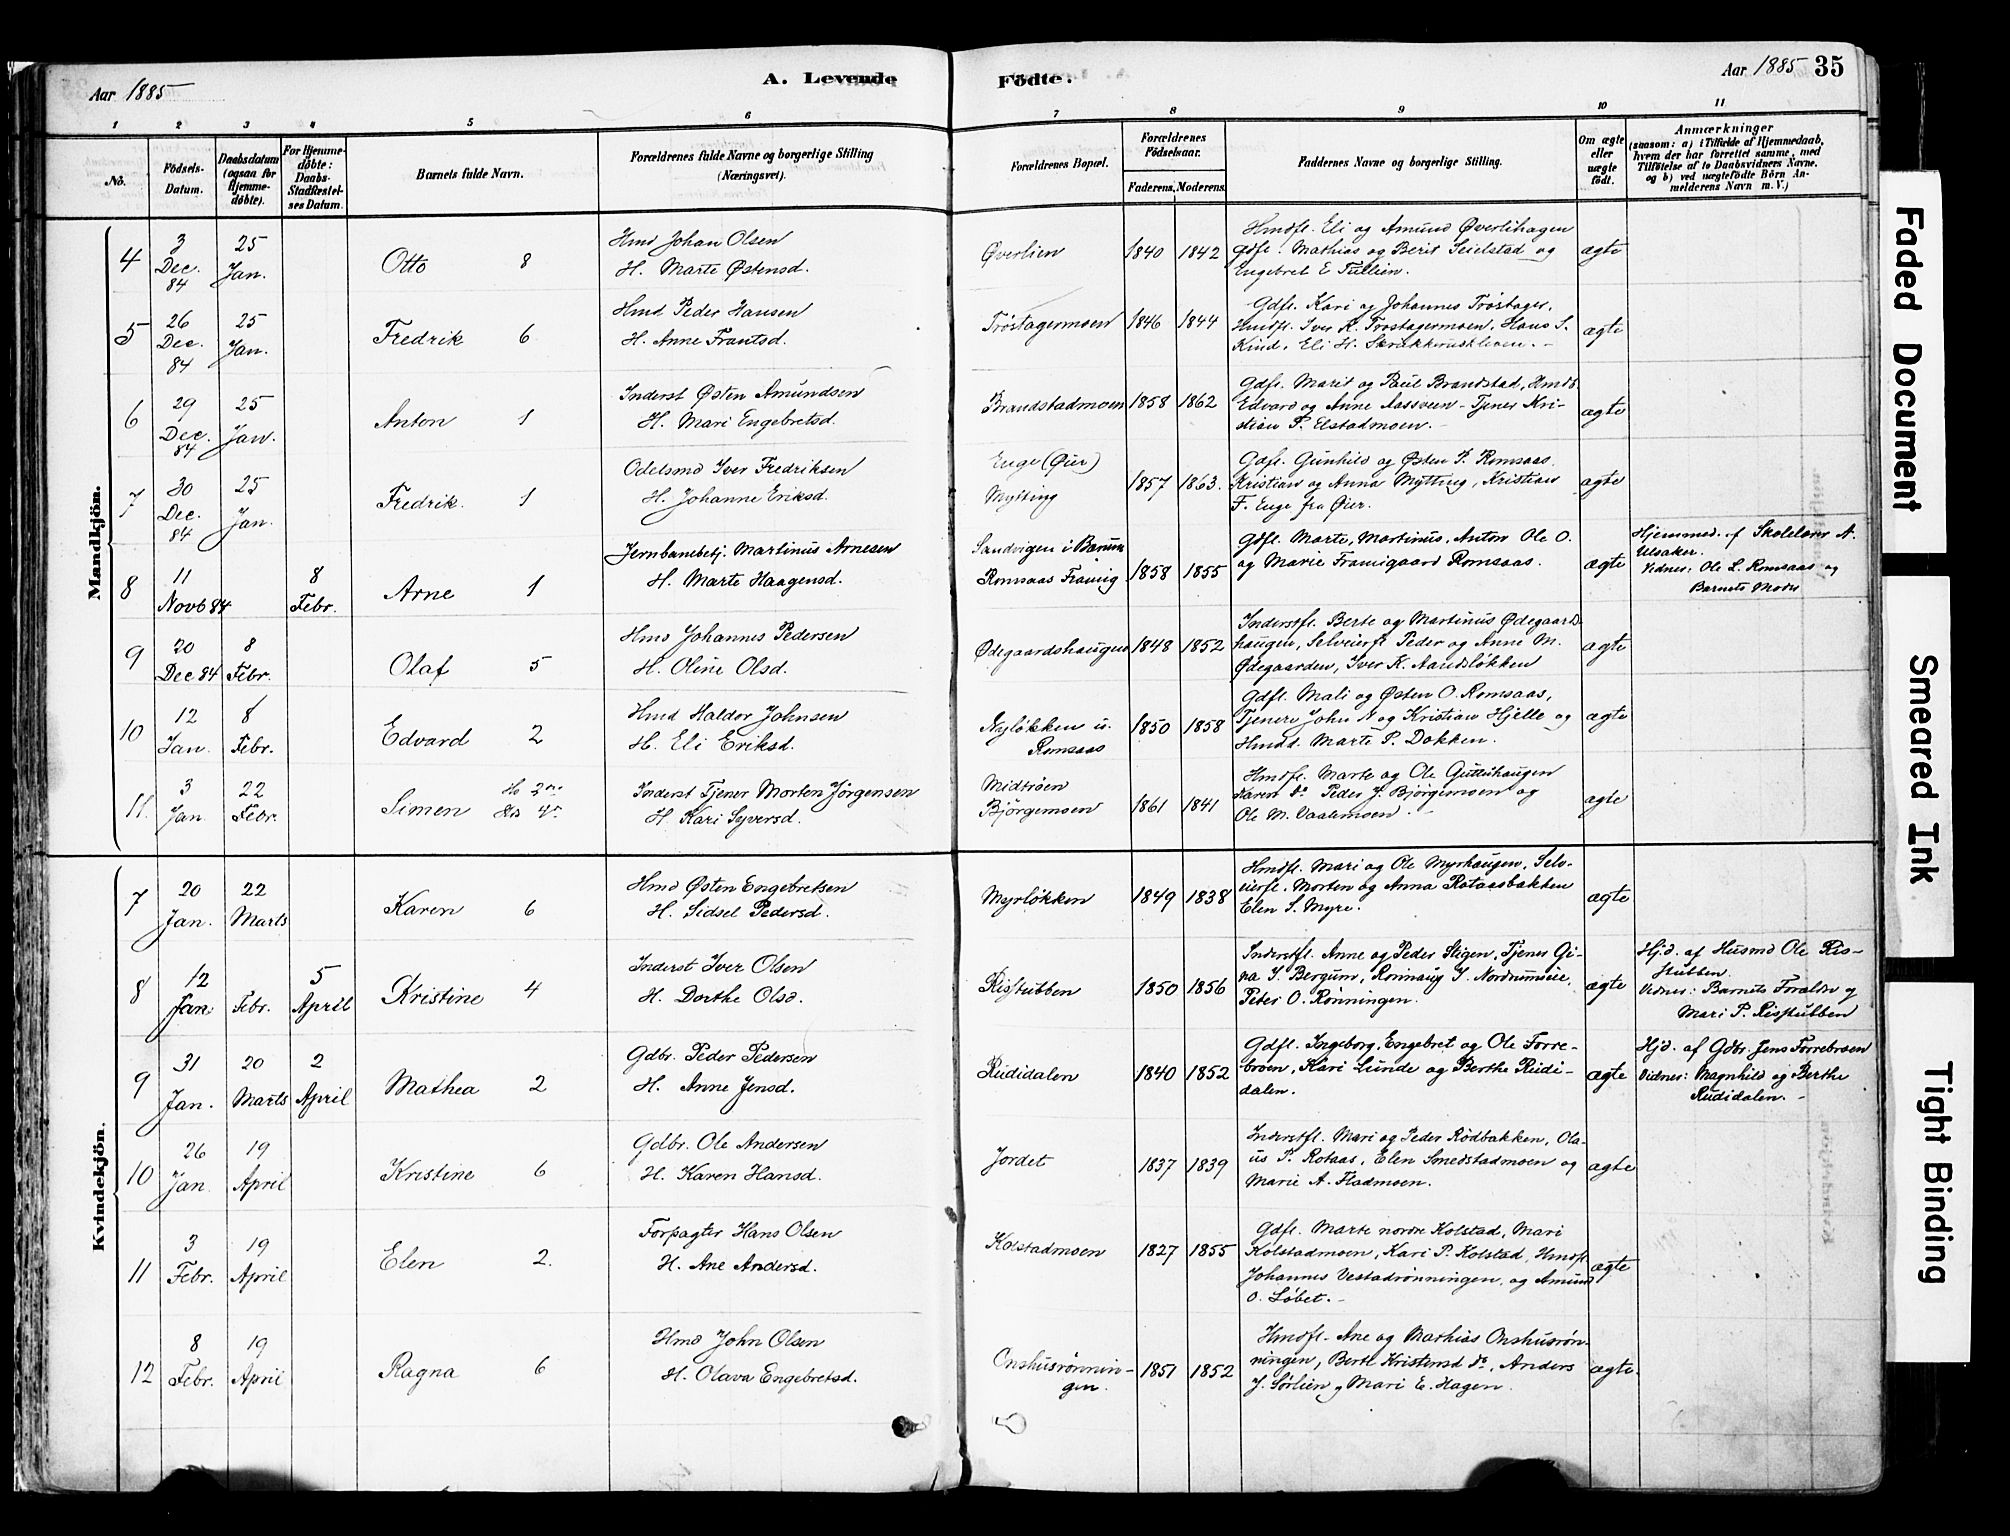 Aar 1885
A. Levende
Födte.
Aar 1885 35
1 2 3 4 5 6
7 8 9 10 11
No.
Födsels-
Datum.
Daabsdatum
(ogsaa for
Hjemme-
döbte).
For Hjemme-
döbte:
Daabs-
Stadfæstel-
ses Datum.
Barnets fulde Navn.
Forældrenes fulde Navne og borgerlige Stilling
(Næringsvei).
Forældrenes Bopæl.
Forældrenes
Födselsaar.
Faderens. Moderens.
Faddernes Navne og borgerlige Stilling.
Om ægte
eller
uægte
födt.
Anmærkninger
(saasom: a) i Tilfælde af Hjemmedaab,
hvem der har forrettet samme, med
Tilföielse af to Daabsvidners Navne,
og b) ved uægtefödte Börn An-
melderens Navn m. V.)
Mandkjön.
4
3
Dec.
84
25
Jan.
Otto 8
Hmd Johan Olsen
H. Marte Østensd.
Øverlien
1840 1842
Hmdfl. Eli og Amund Øverlihagen
Gdfl. Mathias og Berit Seielstad og
Engebret E Tullien.
ægte
5
26
Dec.
84
25
Jan.
Fredrik 6
Hmd Peder Hansen
H. Anne Frantsd.
Tröstagermoen
1846 1844
Gdfl. Kari og Johannes Tröstager,
Hmdfl. Iver K. Trostagermoen, Hans S.
Kind, Eli H. Skrukkerustleven. -
ægte
6
29
Dec.
84
25
Jan.
Anton 1
Inderst Østen Amundsen
H. Mari Engebretsd.
Brandstadmoen
1858 1862
Gdfl. Marit og Paul Brandstad, Hmds
Edvard og Anne Aassveen - Tjener Kri-
stian P. Elstadmoen.
ægte
7
30
Dec.
84
25
Jan.
Fredrik. 1
Odelsmd Iver Fredriksen
H. Johanne Eriksd.
Enge (Øier)
Mytting
1857 1863.
Gdfl. Gunhild og Østen P. Romsaas.
Kristian og Anna Mytting, Kristian
F. Enge fra Øier.
ægte
8
11
Novb 84
8
Febr.
Arne 1
Jernbanebetj. Martinus Arnesen
H. Marte Haagensd.
Sandvigen i Bærum
Romsaas Framig
1858 1855
Gdfl. Marte, Martinus, Anton Ole O.
og Marie Framigaard Romsaas.
ægte
Hjemmed. af Skolelærer A.
Ulsaker.
Vidner: Ole L. Romsaas og
Barnets Moder
9
20
Dec 84
8
Febr.
Olaf 5
Hmd Johannes Pedersen
H. Oline Olsd.
Ødegaardshaugen
1848 1852
Inderstfl. Berte og Martinus Ødegaards
haugen, Selveierfl Peder og Anne M.
Ødegaarden, Iver K. Aandsløkken
ægte
10
12
Jan.
8
Febr.
Edvard 2
Hmd Haldor Johnsen
H. Eli Eriksd.
Nyløkken u.
Romsaas
1850 1858
Gdfl. Mali og Østen O. Romsaas,
Tjenere John N og Kristian Hjelle og
Hmdd. Marte P. Dokken.
ægte
11.
3
Jan
22
Febr.
Simen
Inderst Tjener Morten Jörgensen
H. Kari Syversd.
Midtröen
Björgemoen
1861 1841
Hmdfl. Marte og Ole Guttuhaugen
Karen do Peder J. Björgemoen og
Ole M. Vaalemoen. -
ægte
Kvindekjön.
7
20
Jan.
22
Marts
Karen 6
Hmd Østen Engebretsen
H. Sidsel Pedersd.
Myrløkken
1849 1838
Hmdfl. Mari og Ole Myrhaugen, Selv-
eierfl. Morten og Anna Rotaasbakken
Elen S. Myre.
ægte
8
12
Jan
Febr.
5
April
Kristine 4
Inderst Iver Olsen
H. Dorthe Olsd.
Risstubben
1850 1856
Inderstfl. Anne og Peder Stigen, Tjener Gi-
na I. Bergum, Rønnaug I. Nordrumseie,
Peter O. Rønningen.
ægte
Hjd. af Husmd Ole Ris-
stubben
Vidner: Barnets Forældre og
Mari P. Risstubben
9
31
Jan.
20
Marts
2
April
Mathea 2
Gdbr. Peder Pedersen
H. Anne Jensd.
Rudidalen
1840 1852
Gdfl. Ingeborg, Engebret og Ole Forre-
broen, Kari Lunde og Berthe Rudi-
dalen.
ægte
Hjd. af Gdbr. Jens Forrebroen
Vidner: Magnhild og Berthe
Rudidalen. -
10
26
Jan
19
April
Kristine 6
Gdbr. Ole Andersen
H. Karen Hansd.
Jordet
1837 1839
Inderstfl. Mari og Peder Rödbakken, Ola-
us P. Rotaas, Elen Smedstadmoen og
Marie A. Fladmoen.
ægte
11
3
Febr.
19
April
Elen 2.
Forpagter Hans Olsen
H. Ane Andersd.
Kolstadmoen
1827 1855
Gdfl. Marte nordre Kolstad, Mari
Kolstadmoen, Kari P. Kolstad, Hmdfl
Johannes Vestadrönningen, og Amund
O. Løbet. -
ægte
12
8
Febr.
19
April
Ragna 6
Hmd John Olsen
H. Olava Engebretsd.
Onshusrønnin-
gen.
1851 1852
Hmdfl. Ane og Mathias Onshusrøn-
ningen, Berte Kristensd do, Anders
J. Sørlien og Mari E. Hagen.
ægte.
Faded Document
Smeared Ink
Tight Binding